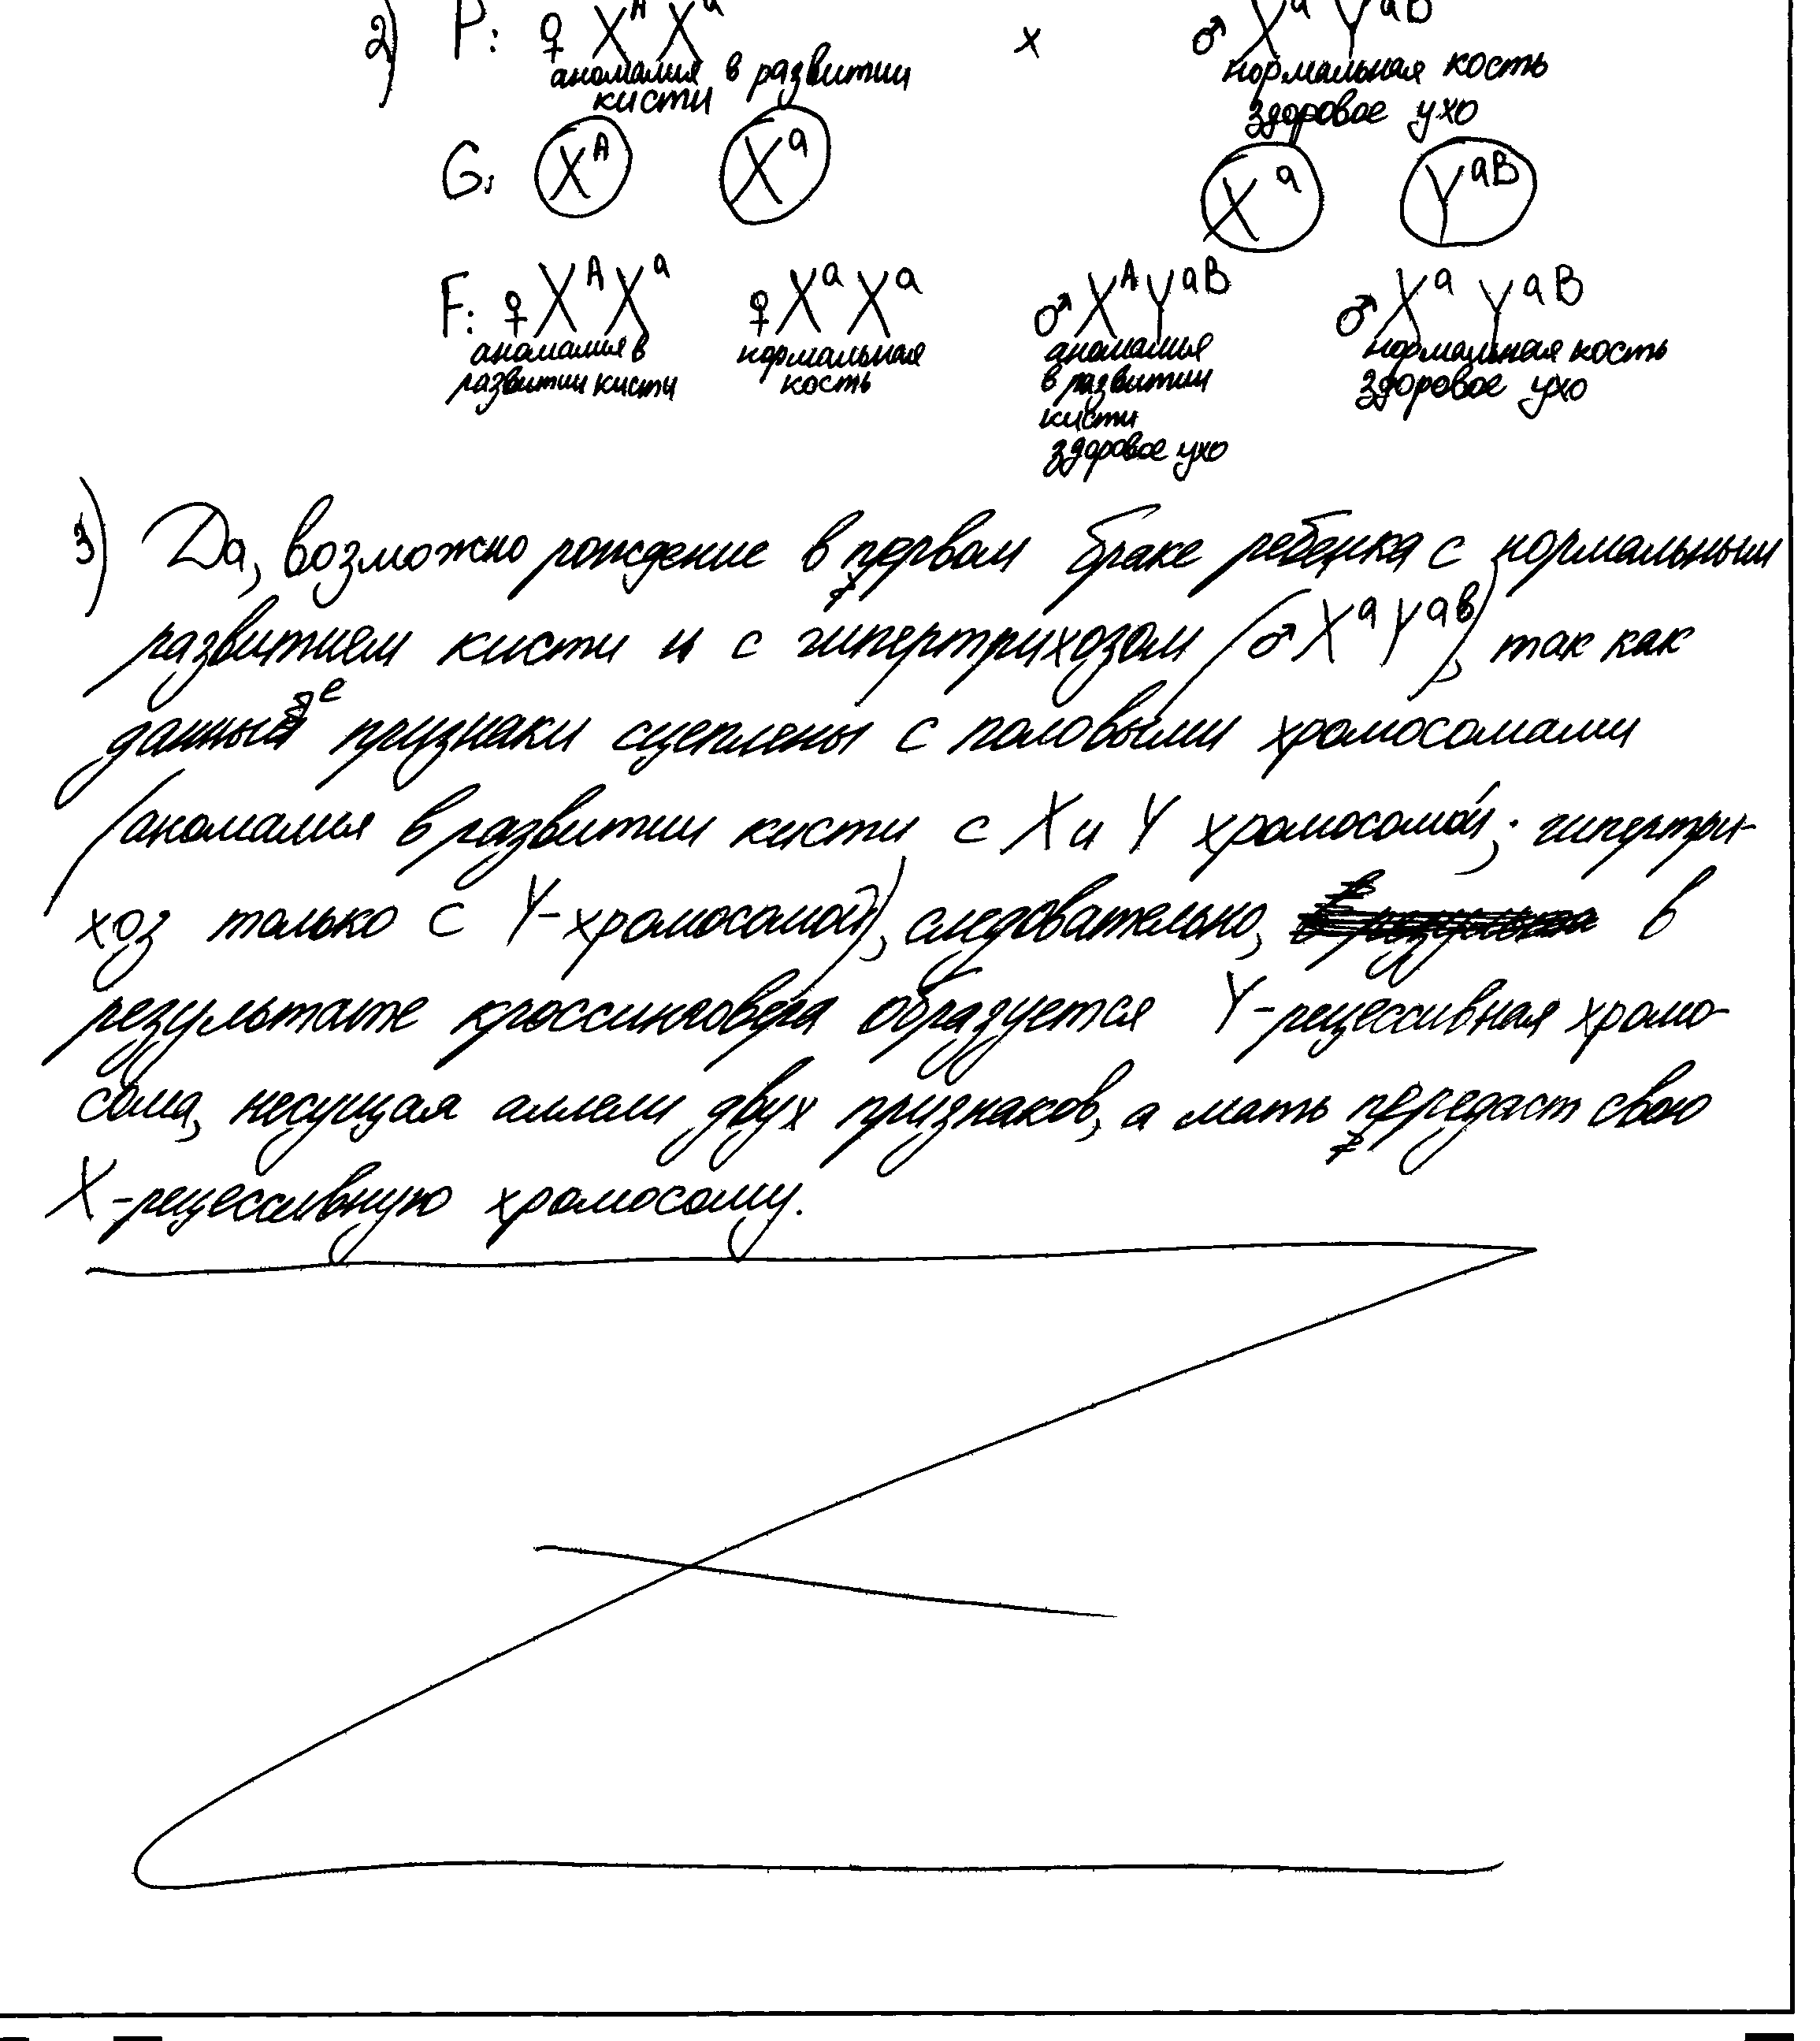 2) P: ♀ X^A X^a × ♂ X^a Y^aB
аномалия в развитии кисти нормальная кость здоровое ухо
G: X^A X^a X^a Y^aB
F: ♀ X^A X^a ♀ X^a X^a ♂ X^A Y^aB ♂ X^a Y^aB
аномалия в развитии кисти нормальная кость аномалия в развитии кисти здоровое ухо нормальная кость здоровое ухо
3) Да, возможно рождение в первом браке ребенка с нормальным
развитием кисти и с гипертрихозом (♂ X^a Y^ab), так как
данные признаки сцеплены с половыми хромосомами
(аномалия в развитии кисти с X и Y хромосомой; гипертри-
хоз только с Y-хромосомой), следовательно, в
результате кроссинговера образуется Y-рецессивная хромо-
сома, несущая аллели двух признаков, а мать передаст свою
X-рецессивную хромосому.